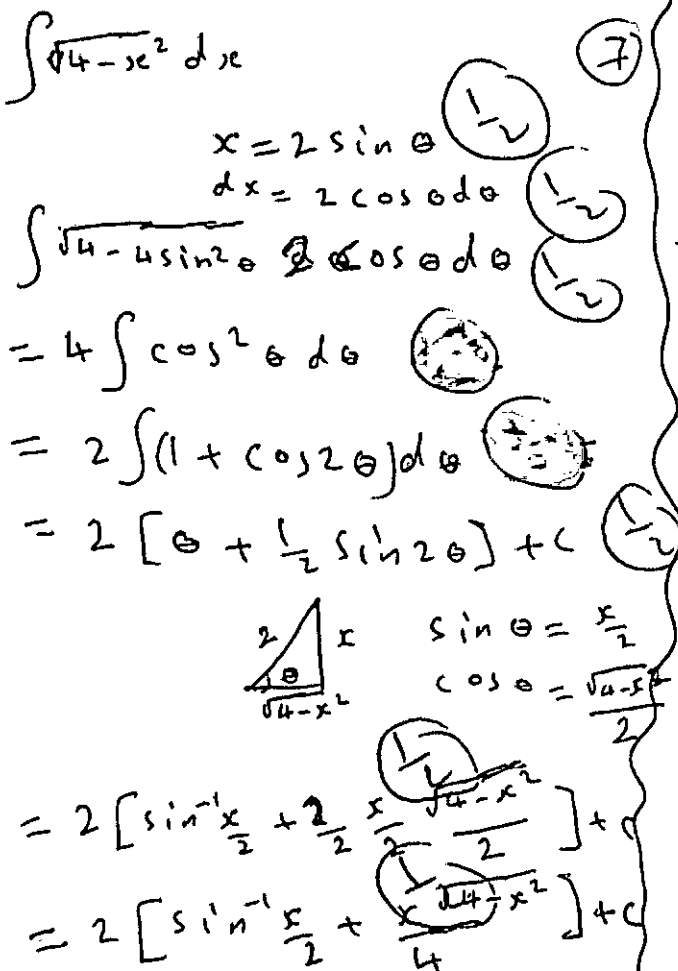 ∫√(4-x²) dx ⑦
x = 2 sin θ (1/2)
dx = 2 cos θ dθ (1/2)
∫ √(4-4sin²θ) 2 cos θ dθ (1/2)
= 4 ∫ cos² θ dθ
= 2 ∫(1 + cos2θ)dθ
= 2 [θ + 1/2 sin 2θ] + c (1/2)
2 x sin θ = x/2
θ
√(4-x²) cos θ = √(4-x²)/2
(1/2)
= 2 [sin⁻¹ x/2 + 2/2 x/2 √(4-x²)/2] + c
= 2 [sin⁻¹ x/2 + x√(4-x²)/4] + c